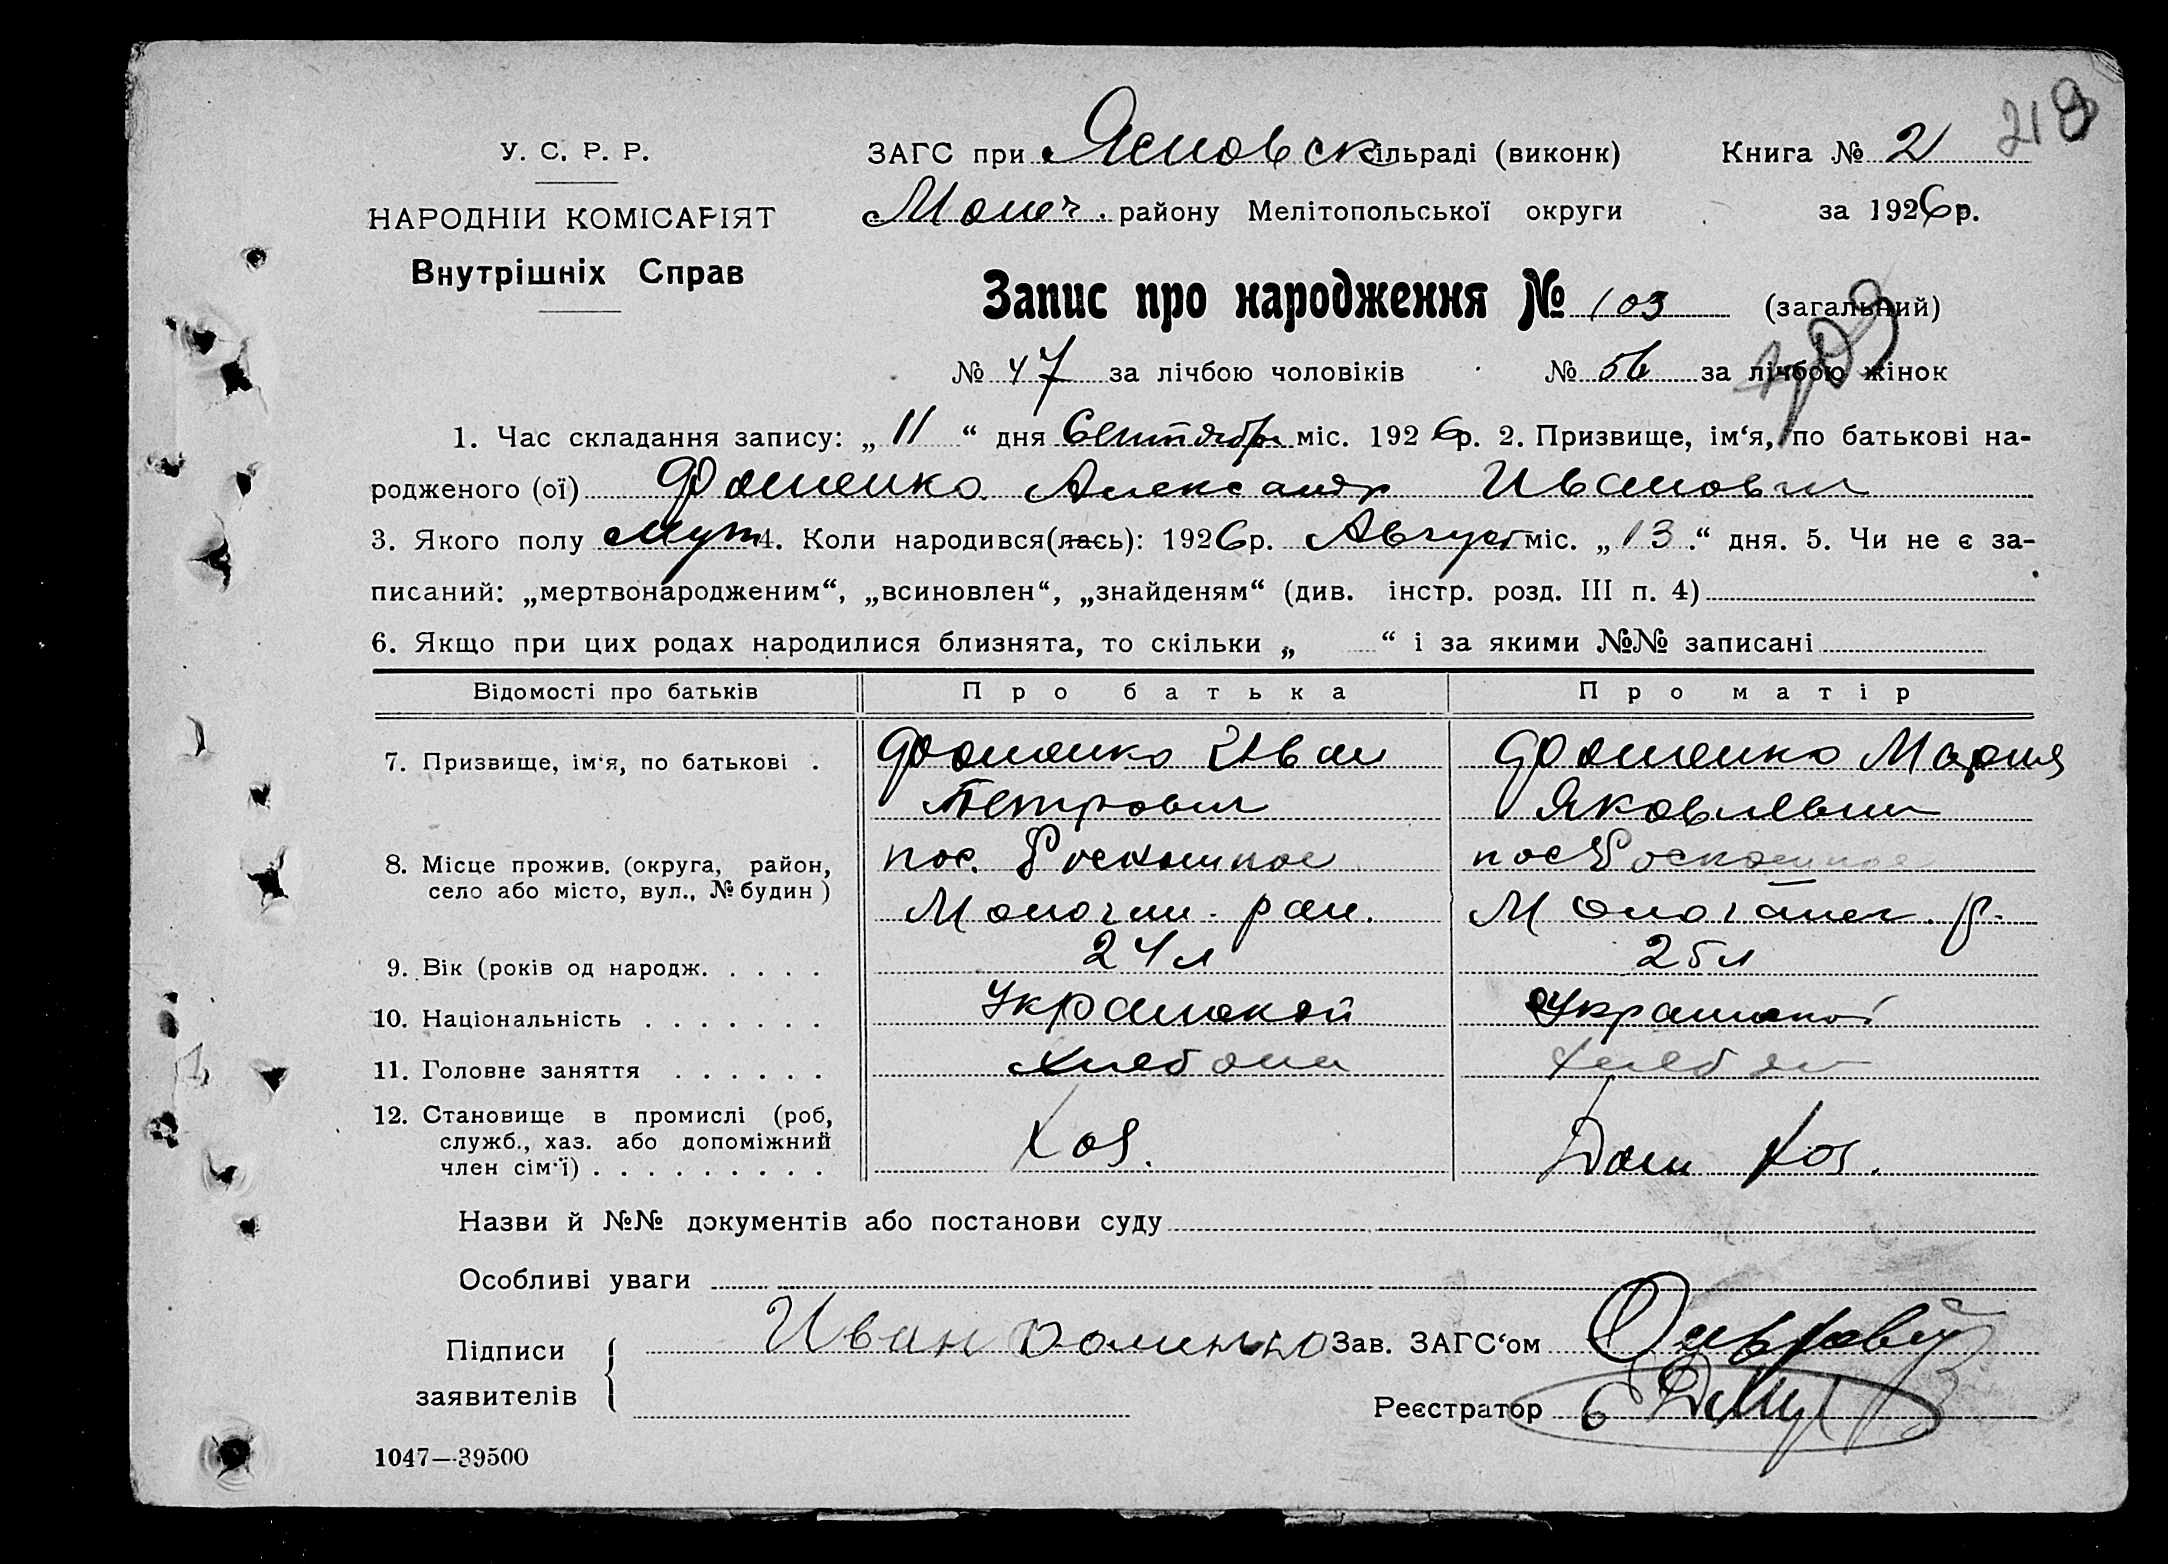 218
У. С. Р. Р.
НАРОДНІЙ КОМІСАРІЯТ
Внутрішніх Справ
ЗАГС при Ясновск сільраді (виконк) Книга № 2
району Мелітопольської округи за 1926 р.
Запис про народження № 103 (загальний)
№ 47 за лічбою чоловіків № 56 за лічбою жінок
1. Час складання запису: „ 11 “ дня Сентября міс. 1926 р. 2. Призвище, ім‘я, по батькові на-
родженого (ої) Фоменко Александр Иванович
3. Якого полу муж 4. Коли народився(лась): 1926 р. Август міс. „ 13 “ дня. 5. Чи не є за-
писаний: „мертвонародженим“, „всиновлен“, „знайденям“ (див. інстр. розд. III п. 4)
6. Якщо при цих родах народилися близнята, то скільки „ “ і за якими №№ записані
Відомості про батьків Про батька Про матір
7. Призвище, ім‘я, по батькові . Фоменко Иван Фоменко Мария
Петрович Яковлевна
8. Місце прожив. (округа, район, пос. Роскошное пос Роскошное
село або місто, вул., № будин )
9. Вік (років од народж. . . . . 24 л 25 л
10. Національність . . . . . . .
11. Головне заняття . . . . . .
12. Становище в промислі (роб,
служб., хаз. або допоміжний
член сім‘ї) . . . . . . . . . Хоз. Дом Хоз.
Назви й №№ документів або постанови суду
Особливі уваги
Підписи Иван Фоменко Зав. ЗАГС‘ом
заявителів Реєстратор
1047—39500